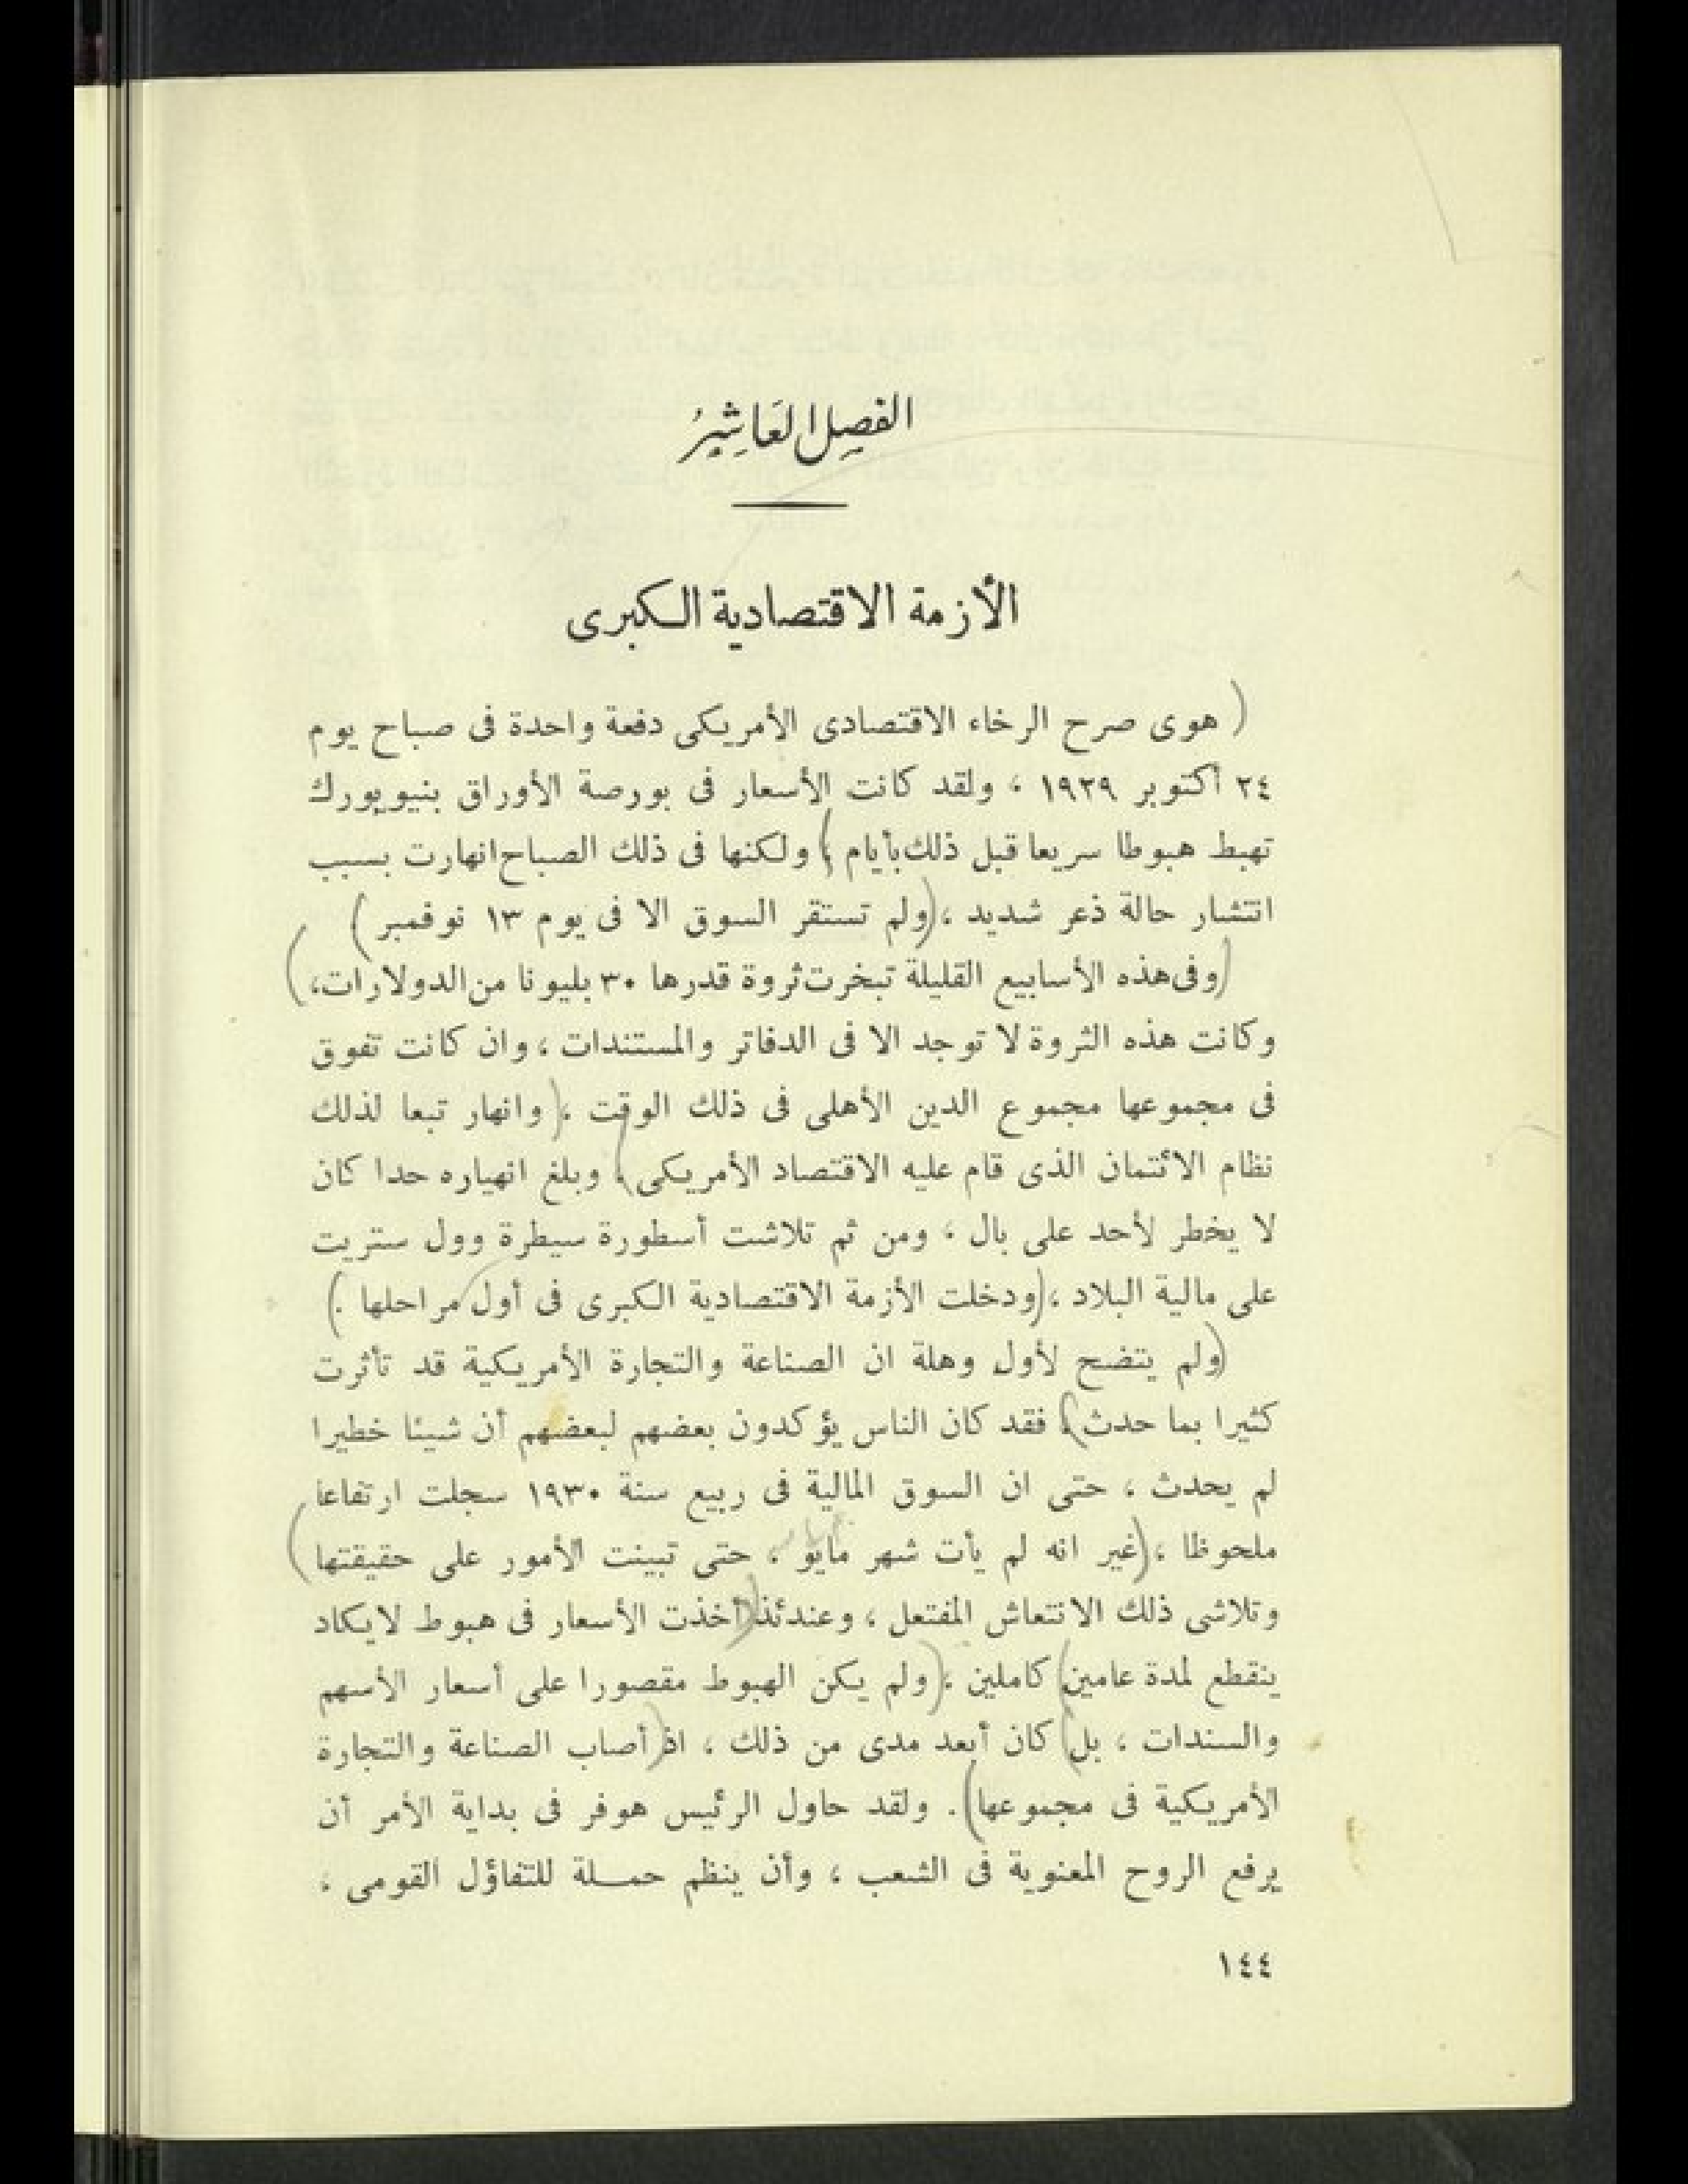 الفصل العَاشِرُ
الأزمة الاقتصادية الكبرى
هوى صرح الرخاء الاقتصادى الأمريكى دفعة واحدة فى صباح يوم
٢٤ أكتوبر ١٩٢٩ ، ولقد كانت الأسعار فى بورصة الأوراق بنيويورك
تهبط هبوطا سريعا قبل ذلك بأيام ، ولكنها فى ذلك الصباح انهارت بسبب
انتشار حالة ذعر شديد ، ولم تستقر السوق الا فى يوم ١٣ نوفمبر
وفى هذه الأسابيع القليلة تبخرت ثروة قدرها ٣٠ بليونا من الدولارات،
وكانت هذه الثروة لا توجد الا فى الدفاتر والمستندات ، وان كانت تفوق
فى مجموعها مجموع الدين الأهلى فى ذلك الوقت ، وانهار تبعا لذلك
نظام الائتمان الذى قام عليه الاقتصاد الأمريكى ، وبلغ انهياره حدا كان
لا يخطر لأحد على بال ، ومن ثم تلاشت أسطورة سيطرة وول ستريت
على مالية البلاد ، ودخلت الأزمة الاقتصادية الكبرى فى أول مراحلها .
ولم يتضح لأول وهلة ان الصناعة والتجارة الأمريكية قد تأثرت
كثيرا بما حدث ، فقد كان الناس يؤكدون بعضهم لبعضهم أن شيئا خطيرا
لم يحدث ، حتى ان السوق المالية فى ربيع سنة ١٩٣٠ سجلت ارتفاعا
ملحوظا ، غير انه لم يأت شهر مايو ، حتى تبينت الأمور على حقيقتها
وتلاشى ذلك الانتعاش المفتعل ، وعندئذ أخذت الأسعار فى هبوط لايكاد
ينقطع لمدة عامين كاملين ، ولم يكن الهبوط مقصورا على أسعار الأسهم
والسندات ، بل كان أبعد مدى من ذلك ، اذ أصاب الصناعة والتجارة
الأمريكية فى مجموعها . ولقد حاول الرئيس هوفر فى بداية الأمر أن
يرفع الروح المعنوية فى الشعب ، وأن ينظم حمـلة للتفاؤل القومى ،
١٤٤